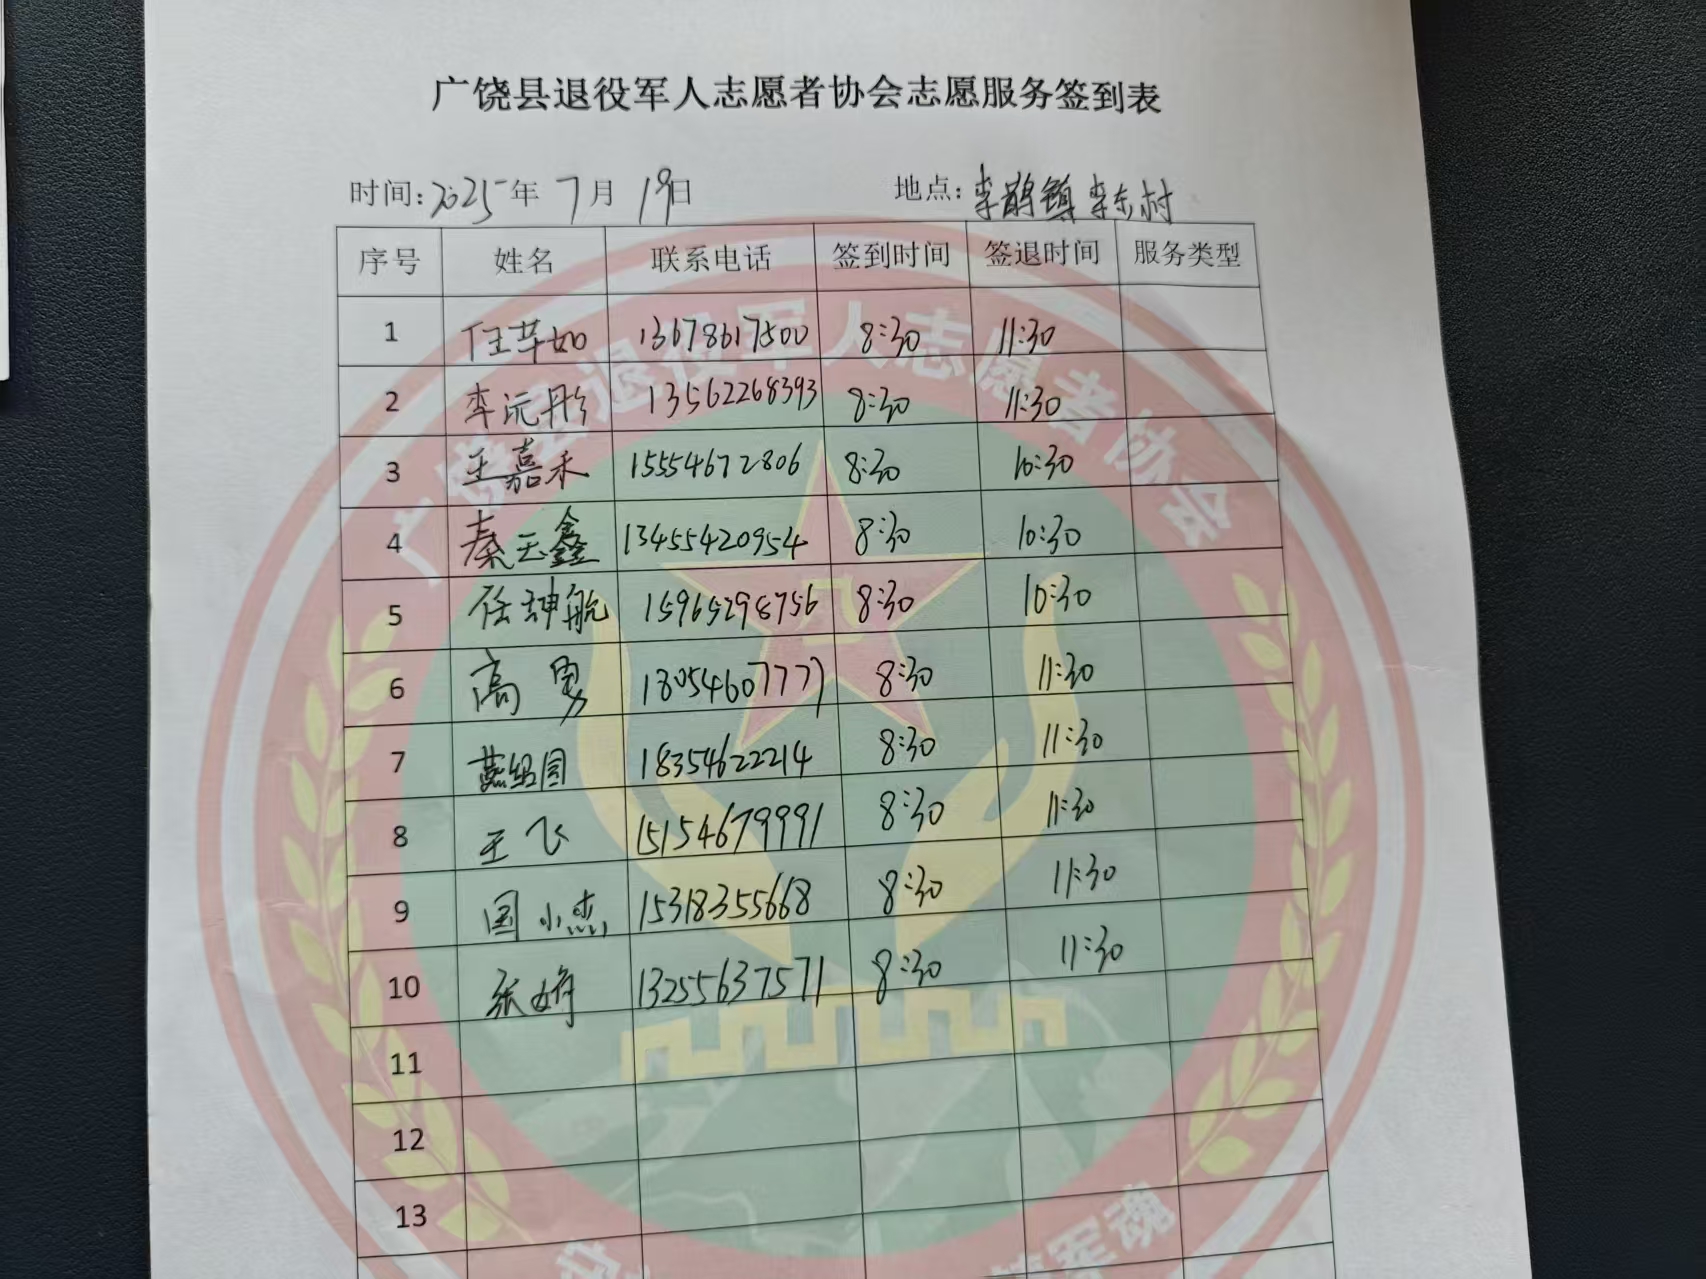 广饶县退役军人志愿者协会志愿服务签到表
时间:2025年7月19日 地点:李鹊镇李东村
序号 姓名 联系电话 签到时间 签退时间 服务类型
1 任芊如 13678617500 8:30 11:30
2 李沅彤 13562268393 8:30 11:30
3 王嘉禾 15554672806 8:30 10:30
4 秦云鑫 13455420954 8:30 10:30
5 任坤航 15965298756 8:30 10:30
6 高勇 18054607777 8:30 11:30
7 18354622214 8:30 11:30
8 王飞 15154679991 8:30 11:30
9 国小杰 15318355668 8:30 11:30
10 张娟 13255637571 8:30 11:30
11
12
13
广饶县退役军人志愿者协会
军魂